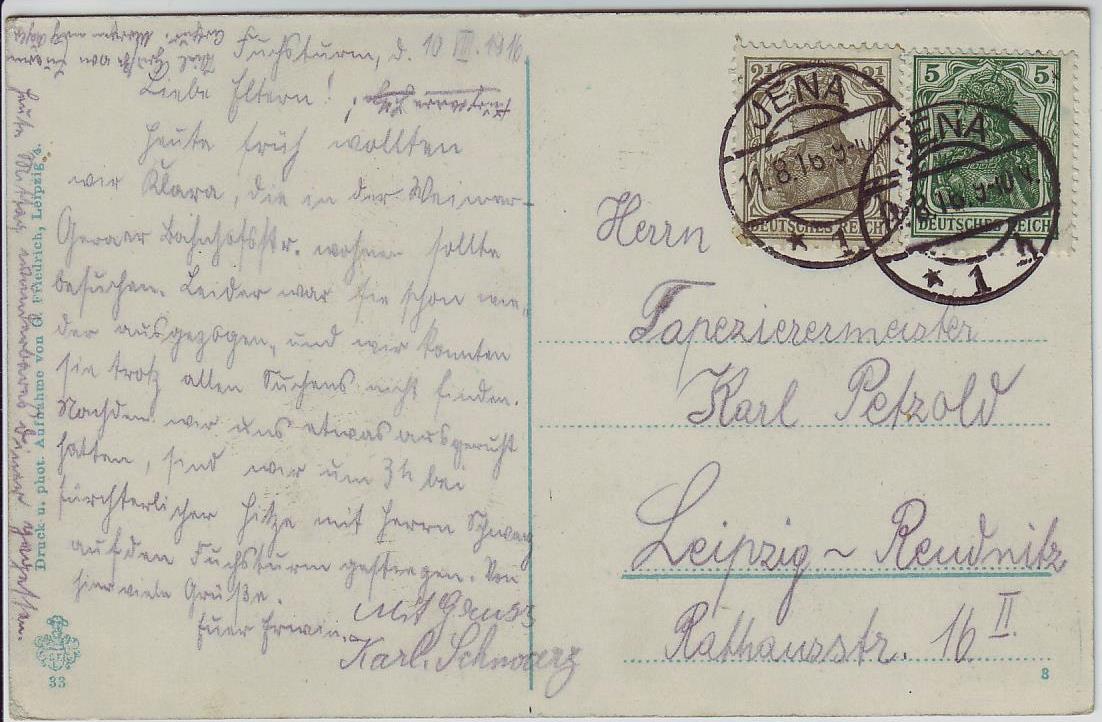 Fuchsturm, d. 10 VIII. 1916
Liebe Eltern!
Heute früh wollten
wir Klara, die in der Weimar-
Geraer Bahnhofsstr. wohnen sollte
besuchen. Leider war sie schon wie-
der ausgezogen, und wir konnten
sie trotz allen Suchens nicht finden.
Nachdem wir uns etwas ausgeruht
hatten, sind wir um 3h bei
fürchterlicher Hitze mit Herrn Schwarz
auf den Fuchsturm gestiegen. Von
hier viele Grüße.
Euer Erwin.
Mit Gruss
Karl. Schwarz
heute Mittag wunderbares Diner gegessen.
Druck u. phot. Aufnahme von G. Friedrich, Leipzig
33
21 21
DEUTSCHES REICH
5 5
DEUTSCHES REICH
JENA
11.8.16.9-10V
* 1
JENA
8.16.9-10V.
* 1
Herrn
Tapezierermeister
Karl Petzold
Leipzig-Reudnitz
Rathausstr. 16 II.
8